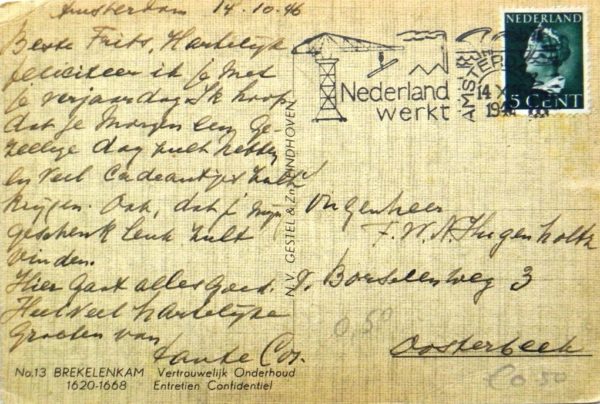 Amsterdam 14-10-46
Beste Frits, Hartelijk
feliciteer ik je met
je verjaardag. Ik hoop
dat je morgen een ge-
zellige dag zult hebben
en veel cadeautjes zult
krijgen. Ook, dat je mijn
geschenk leuk zult
vinden.
Hier gaat alles goed.
Heel veel hartelijke
groeten van
tante Cos.
No.13 BREKELENKAM Vertrouwelijk Onderhoud
1620-1668 Entretien Confidentiel
N.V. GESTEL & Zn EINDHOVEN
Nederland
werkt
AMSTERDAM
14 X
NEDERLAND
5 CENT
F.W.N. Hugenholtz
v. Borselenweg 3
Oosterbeek
0,50
€0.50